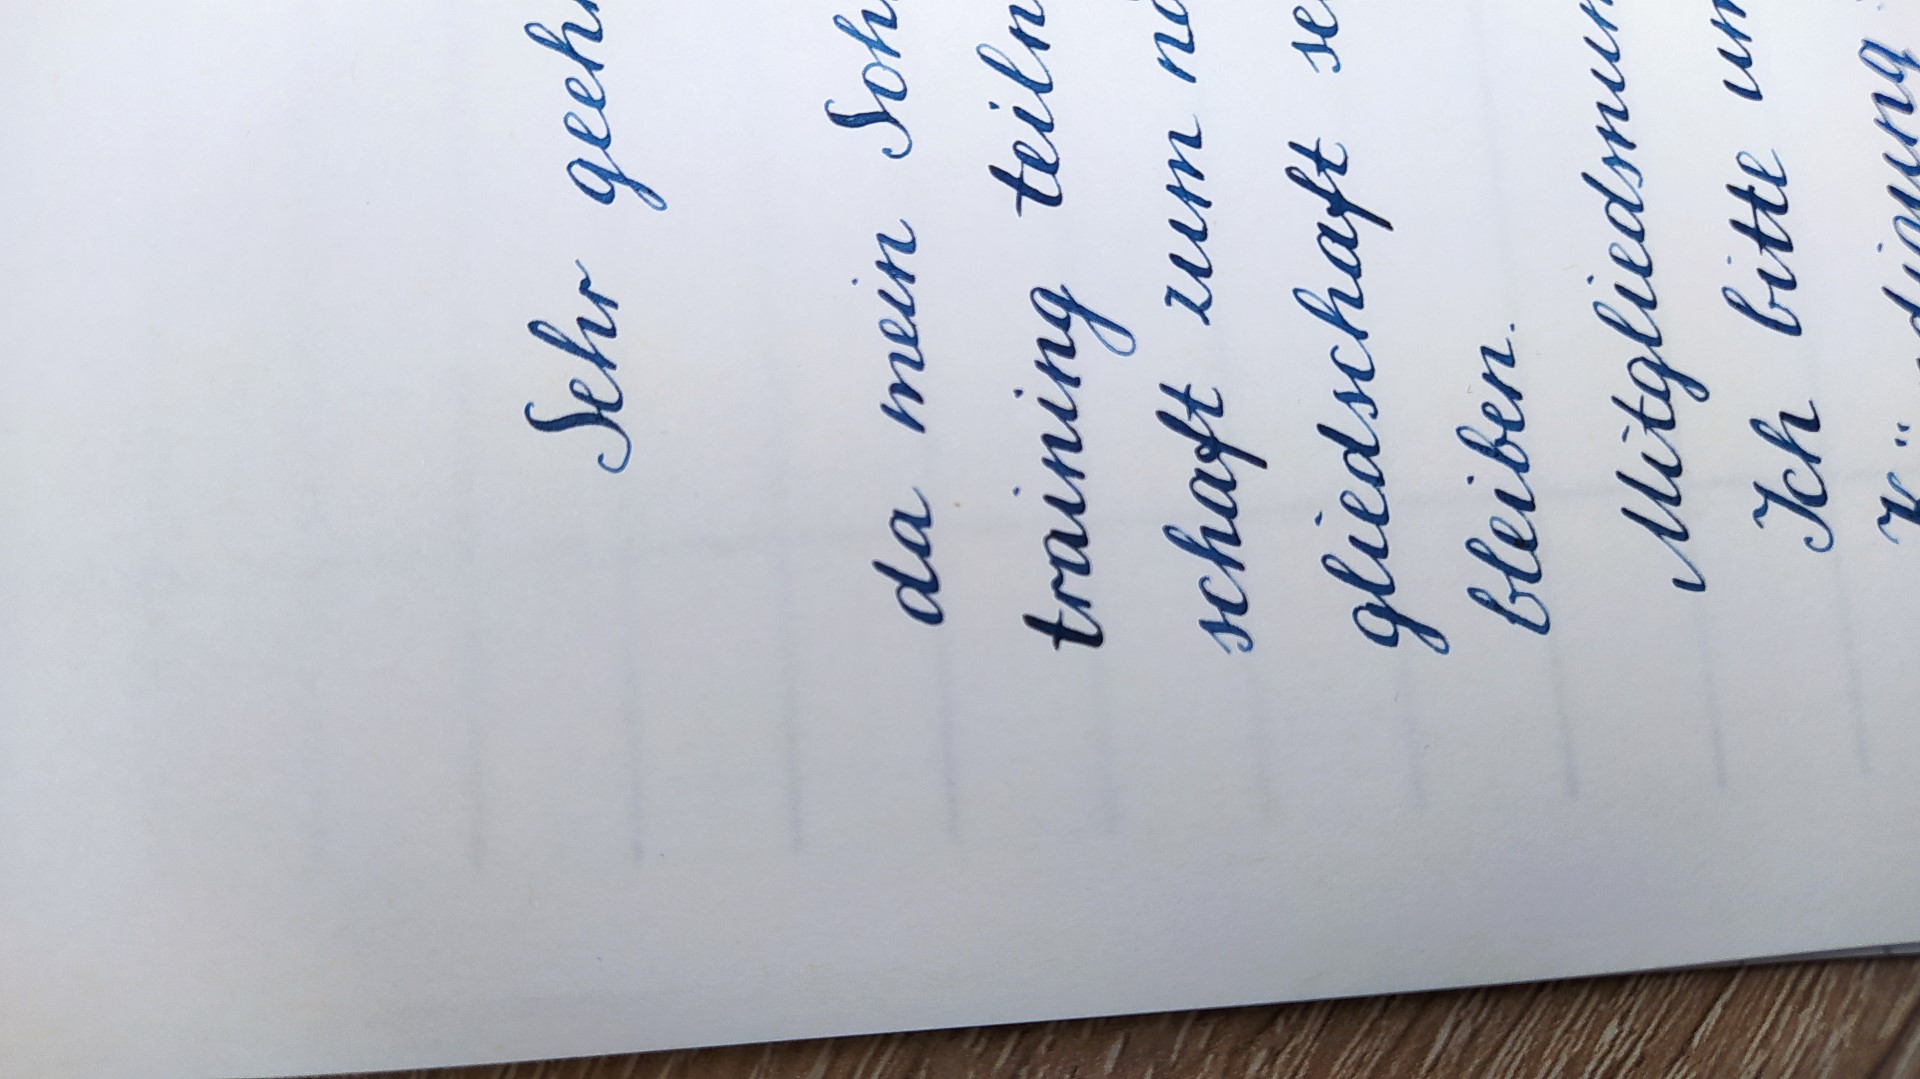 Sehr geeh
da mein Soh
training teiln
schaft zum nä
gliedschaft se
bleiben.
Mitgliedsnum
Ich bitte um
Kündigung